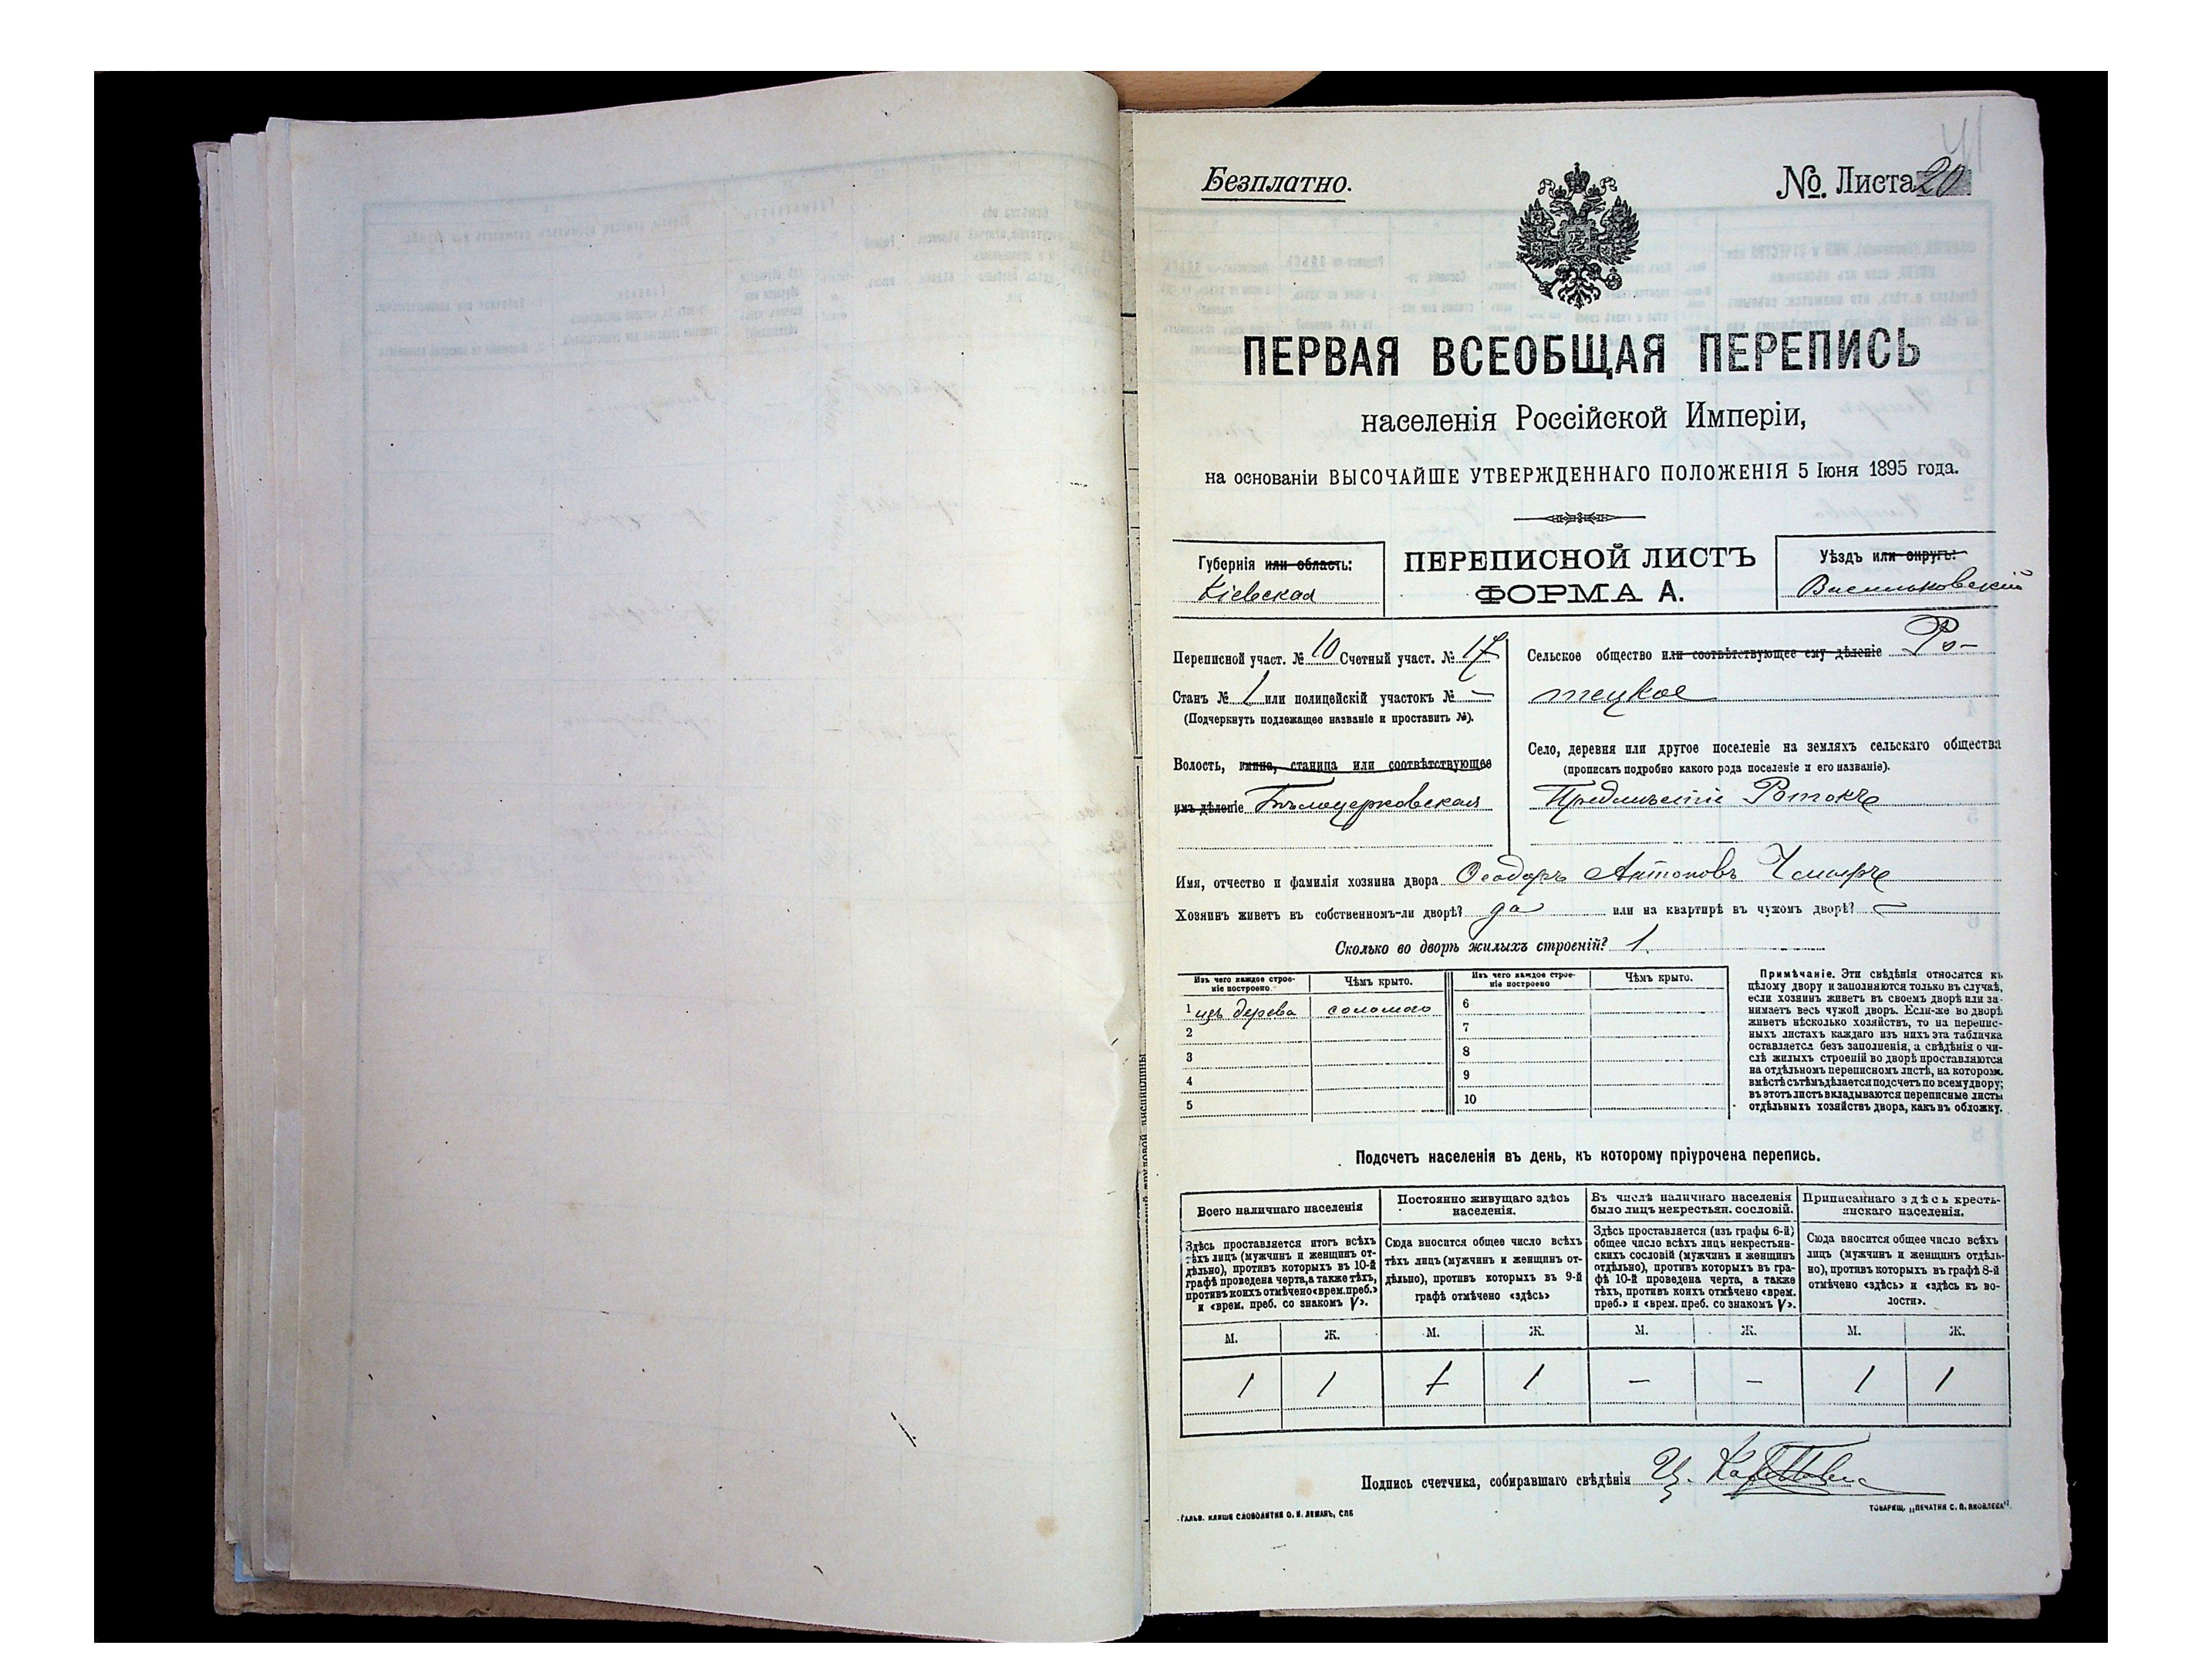 41
Безплатно.
№. Листа 20
ПЕРВАЯ ВСЕОБЩАЯ ПЕРЕПИСЬ
населенія Россійской Имперіи,
на основаніи ВЫСОЧАЙШЕ УТВЕРЖДЕННАГО ПОЛОЖЕНІЯ 5 Іюня 1895 года.
Губернія или область:
Кіевская
ПЕРЕПИСНОЙ ЛИСТЪ
ФОРМА А.
Уѣздъ или округъ:
Васильковскій
Переписной участ. № 10 Счетный участ. № 17
Станъ № 1 или полицейскій участокъ № —
(Подчеркнуть подлежащее названіе и проставить №).
Волость, гмина, станица или соотвѣтствующее
имъ дѣленіе Бѣлоцерковская
Сельское общество или соотвѣтствующее ему дѣленіе Ро-
тецкое
Село, деревня или другое поселеніе на земляхъ сельскаго общества
(прописать подробно какого рода поселеніе и его названіе).
Предмѣстіе Ротокъ
Имя, отчество и фамилія хозяина двора Ѳеодоръ Антоновъ Чмырь
Хозяинъ живетъ въ собственномъ-ли дворѣ? да или на квартирѣ въ чужомъ дворѣ? —
Сколько во дворѣ жилыхъ строеній? 1
Изъ чего каждое строе-
ніе построено.
Чѣмъ крыто.
Изъ чего каждое строе-
ніе построено
Чѣмъ крыто.
1 изъ дерева соломою 6
2 7
3 8
4 9
5 10
Примѣчаніе. Эти свѣдѣнія относятся къ
цѣлому двору и заполняются только въ случаѣ,
если хозяинъ живетъ въ своемъ дворѣ или за-
нимаетъ весь чужой дворъ. Если-же во дворѣ
живетъ нѣсколько хозяйствъ, то на перепис-
ныхъ листахъ каждаго изъ нихъ эта табличка
оставляется безъ заполненія, а свѣдѣнія о чи-
слѣ жилыхъ строеній во дворѣ проставляются
на отдѣльномъ переписномъ листѣ, на которомъ
вмѣстѣ съ тѣмъ дѣлается подсчетъ по всему двору;
въ этотъ листъ вкладываются переписные листы
отдѣльныхъ хозяйствъ двора, какъ въ обложку.
Подсчетъ населенія въ день, къ которому пріурочена перепись.
Всего наличнаго населенія
Здѣсь проставляется итогъ всѣхъ
тѣхъ лицъ (мужчинъ и женщинъ от-
дѣльно), противъ которыхъ въ 10-й
графѣ проведена черта, а также тѣхъ,
противъ коихъ отмѣчено «врем. преб.»
и «врем. преб. со знакомъ V».
Постоянно живущаго здѣсь
населенія.
Сюда вносится общее число всѣхъ
тѣхъ лицъ (мужчинъ и женщинъ от-
дѣльно), противъ которыхъ въ 9-й
графѣ отмѣчено «здѣсь»
Въ числѣ наличнаго населенія
было лицъ некрестьян. сословій.
Здѣсь проставляется (изъ графы 6-й)
общее число всѣхъ лицъ некрестьян-
скихъ сословій (мужчинъ и женщинъ
отдѣльно), противъ которыхъ въ гра-
фѣ 10-й проведена черта, а также
тѣхъ, противъ коихъ отмѣчено «врем.
преб.» и «врем. преб. со знакомъ V».
Приписаннаго здѣсь кресть-
янскаго населенія.
Сюда вносится общее число всѣхъ
лицъ (мужчинъ и женщинъ отдѣль-
но), противъ которыхъ въ графѣ 8-й
отмѣчено «здѣсь» и «здѣсь къ во-
лости».
М. Ж. М. Ж. М. Ж. М. Ж.
1 1 1 1 — — 1 1
Подпись счетчика, собиравшаго свѣдѣнія
ГАЛЬВ. КЛИШЕ СЛОВОЛИТНИ О. И. ЛЕМАНЪ, СПБ
ТОВАРИЩ. „ПЕЧАТНИ С. П. ЯКОВЛЕВА".